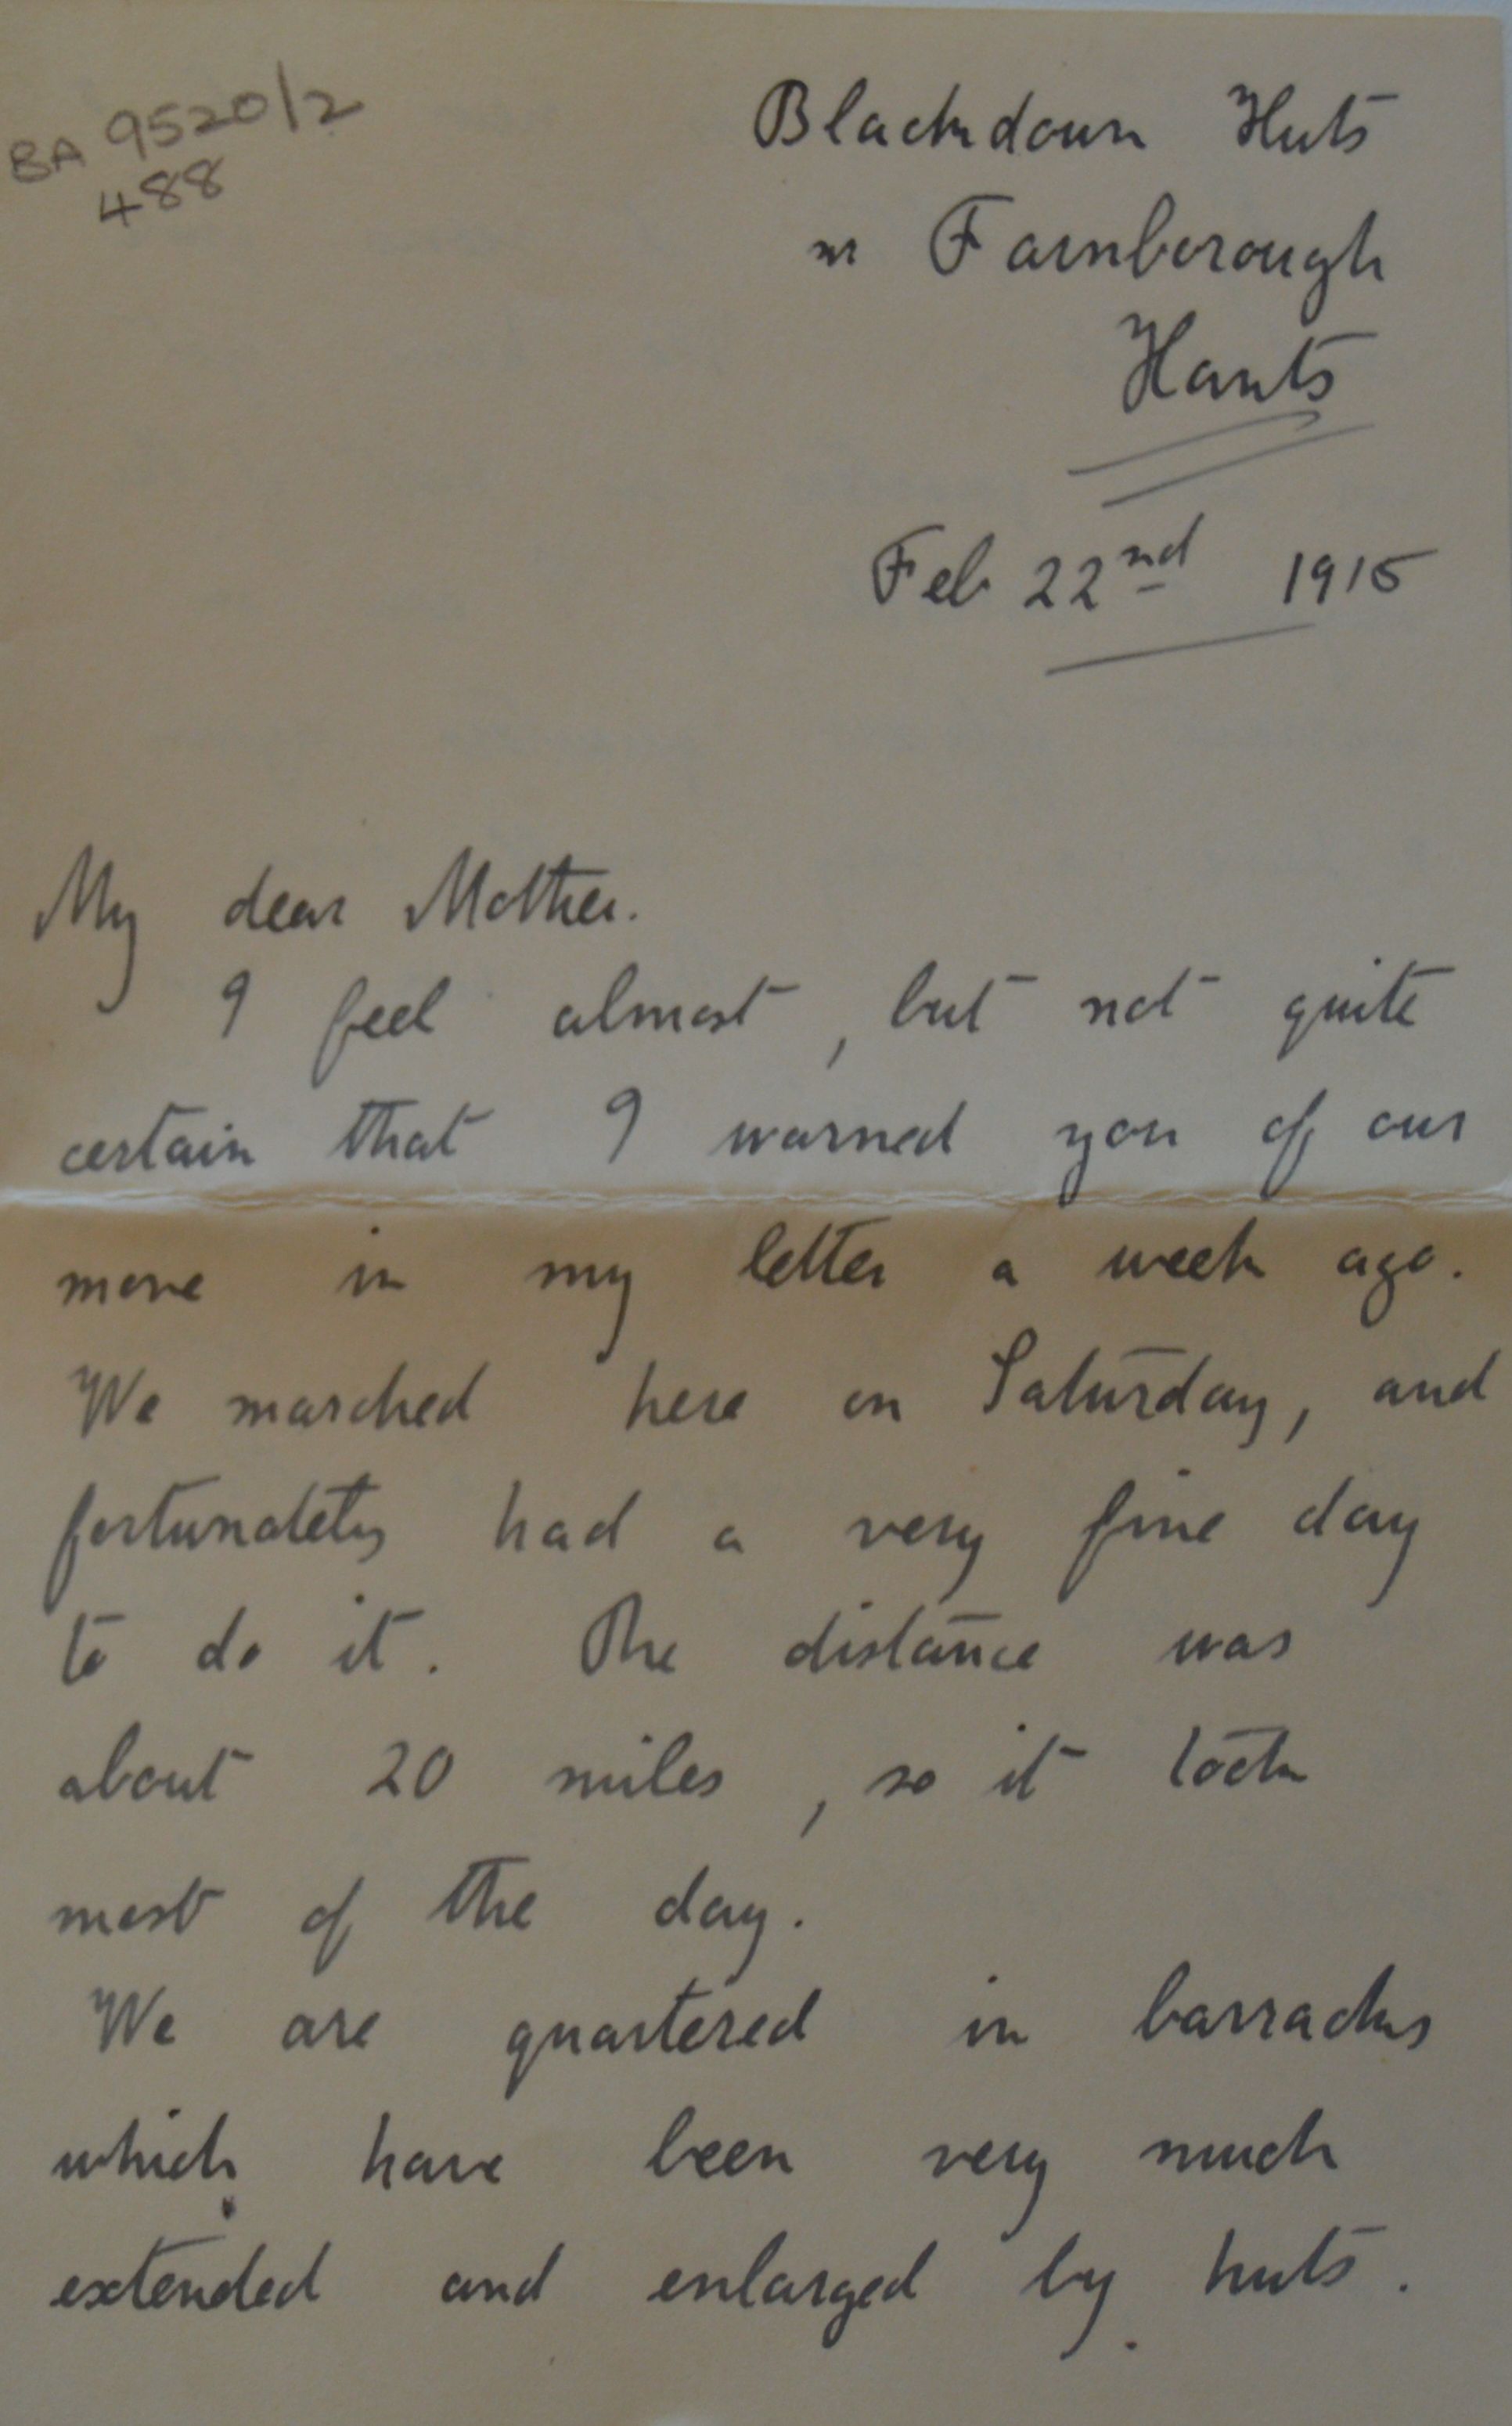 BA 9520/2
488
Blackdown Huts
nr Farnborough
Hants
Feb 22nd 1915
My dear Mother.
I feel almost, but not quite
certain that I warned you of our
move in my letter a week ago.
We marched here on Saturday, and
fortunately had a very fine day
to do it. The distance was
about 20 miles, so it took
most of the day.
We are quartered in barracks
which have been very much
extended and enlarged by huts.